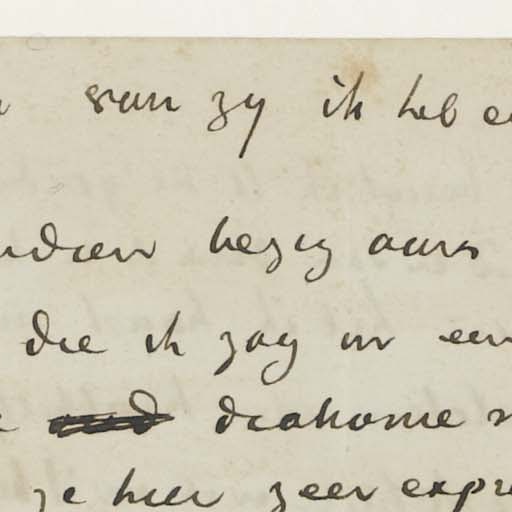 van zy ik heb
bezig aan
die ik zag in een
diakonie
ze hier zeer expre